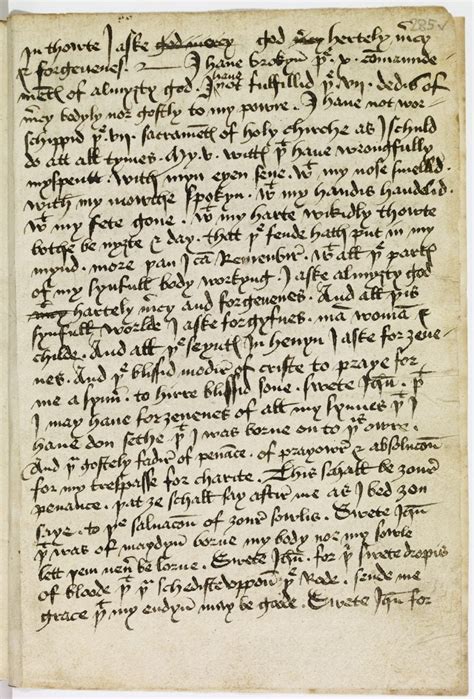 285v
In thowte I aske god mercy god mcy hertely mcy
& forgeuenes. I haue brokyn þe x comaunde
metȝ of almyȝty god. I haue not fulfillid þe vii dedis of
mcy bodyly nor gostly to my powre. I haue not wor
schippid þe vii. sacrametȝ of holy chirche as I schuld
do att all tymes. My v. witt þt haue wrongfully
myspent. with myn eyen sene. wt my nose smellid.
with my mowthe spokyn. wt my handis handelid.
wt my fete gone. wt my harte wikidly thowte
bothe be nyȝte & day. that þe fende hath put in my
mynd. more þan I ca Remembr. wt all þe partȝ
of my synfull body workyng. I aske almyȝty god
mcy hartely mcy and forgeuenes. And all þis
synfull worlde I aske forgyfnes. ma woma &
childe. And all þe seyntȝ In heuyn I aske forȝeue
nes. And þe blissid modir of criste to praye for
me a synn. to hirre blissid sone. Swete Ihu. þt
I may haue forȝeuenes of all my synnes þt I
haue don sethe þt I was borne on to þis owre.
And þe gostely fadir of penace. of prayowr & absolucon
for my trespasse for charite. This schall be ȝour
penance. þat ȝe schall say aftir me as I bed ȝon
saye. to þe saluacon of ȝour sowlis. Swete Ihu
þt was of maydyn borne my body nor my sowle
lett þem neu be lorne. Swete Ihu. for þe swete dropis
of bloode þt þu schediste vppon þe Rode. sende me
grace þt my endyn may be goode. Swete Ihu for